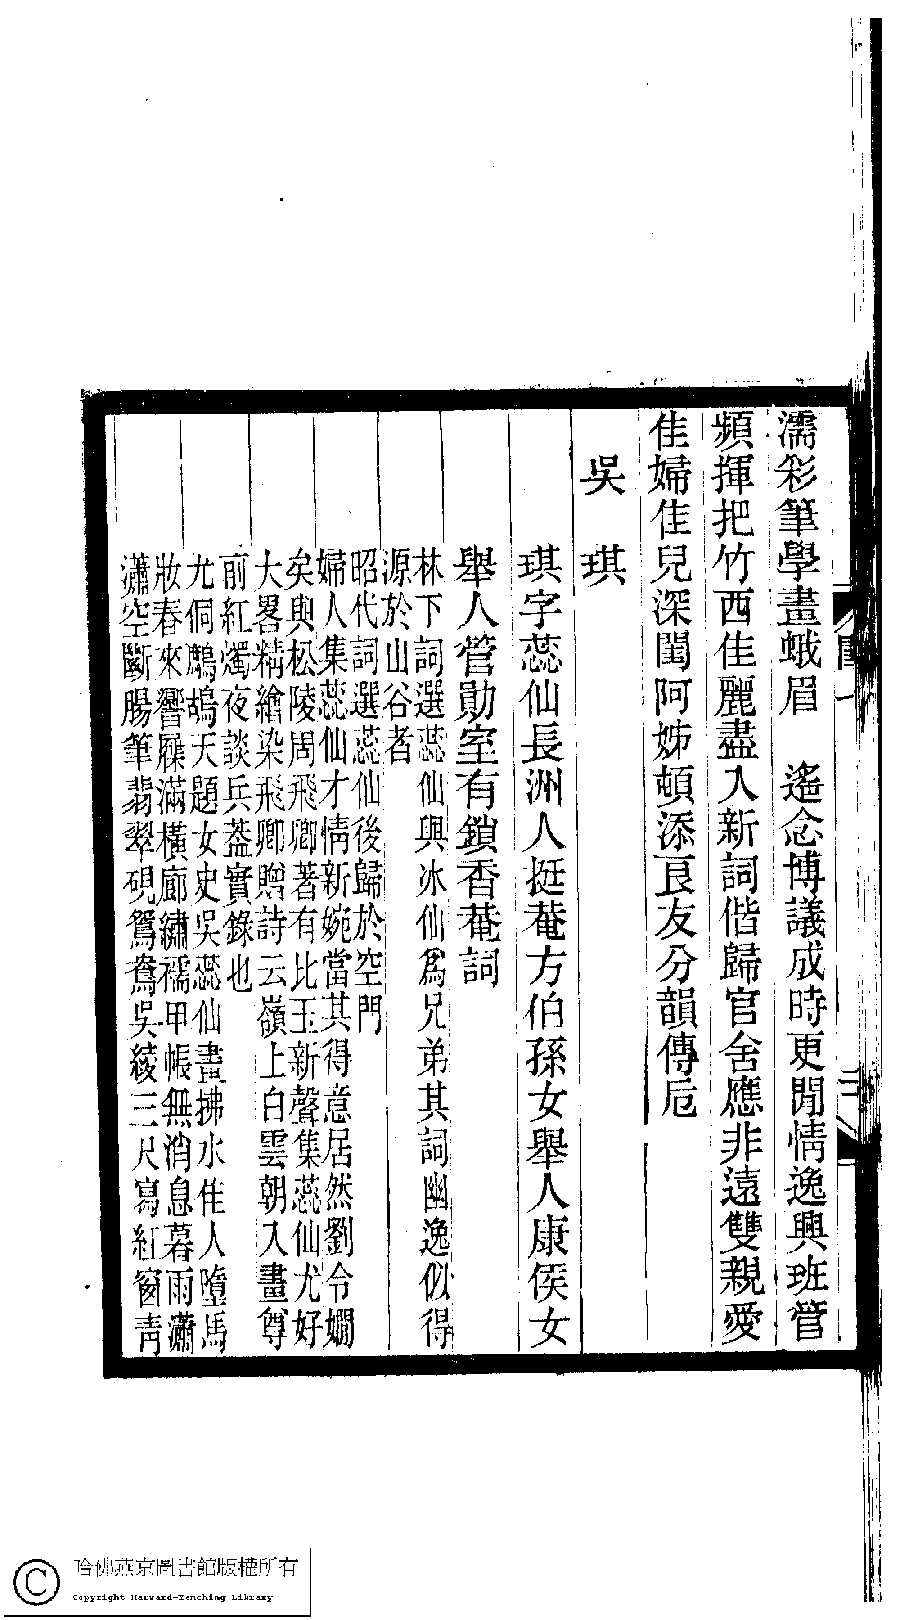 濡彩筆學畫蛾眉　遙念博議成時更閒情逸興班管
頻揮把竹西佳麗盡入新詞偕歸官舍應非遠雙親愛
佳婦佳兒深閨阿姊頓添良友分韻傳卮
吳　琪
琪字蕊仙長洲人挺菴方伯孫女舉人康侯女
舉人管勛室有鎖香菴詞
林下詞選蕊仙與冰仙爲兄弟其詞幽逸似得
源於山谷者
昭代詞選蕊仙後歸於空門
婦人集蕊仙才情新婉當其得意居然劉令嫺
矣與松陵周飛卿著有比玉新聲集蕊仙尤好
大畧精繪染飛卿贈詩云嶺上白雲朝入畫尊
前紅燭夜談兵葢實錄也
尤侗鷓鴣天題女史吳蕊仙畫拂水佳人墮馬
妝春來響屧滿橫廊繡襦甲帳無消息暮雨瀟
瀟空斷腸筆翡翠硯鴛鴦吳綾三尺寫紅窗青
哈佛燕京圖書館版權所有
Copyright Harvard-Yenching Library